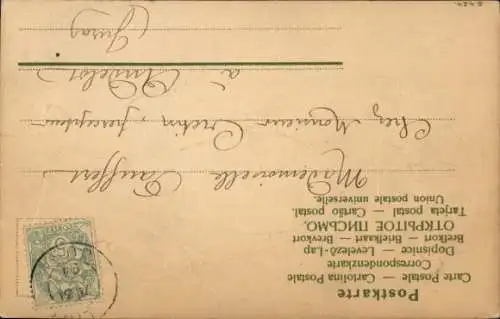 Postkarte
Carte Postale — Cartolina Postale
Correspondenzkarte
Dopisnice — Levelező-Lap
Brefkort — Briefkaart — Brevkort
ОТКРЫТОЕ ПИСЬМО.
Tarjeta postal — Cartão postal.
Union postale universelle.
Mademoiselle
Chez Monsieur Cretin, percepteur
à Andelot
(Jura)